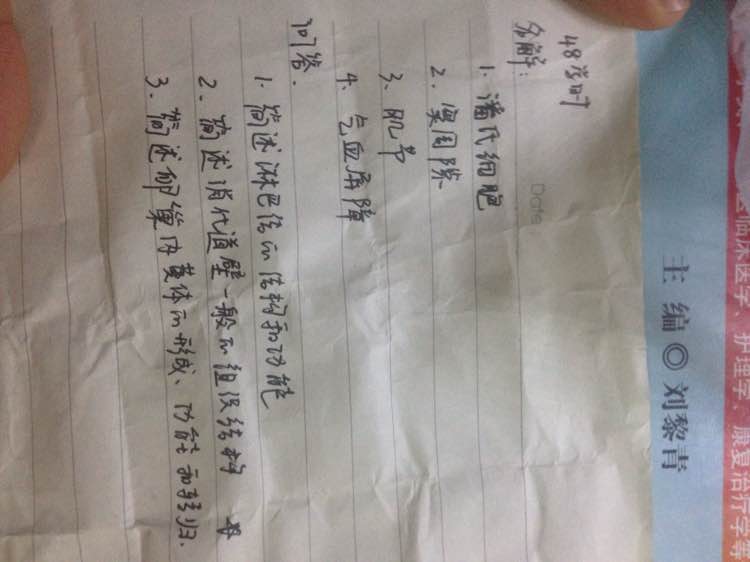 48学时
名解:
1. 潘氏细胞
2. 窦周隙
3. 肌节
4. 气血屏障
问答.
1. 简述淋巴结的结构和功能
2. 简述消化道壁一般的组织结构
3. 简述卵巢内黄体的形成、功能和转归.
Date
主编◎刘黎青
临床医学、护理学、康复治疗学等